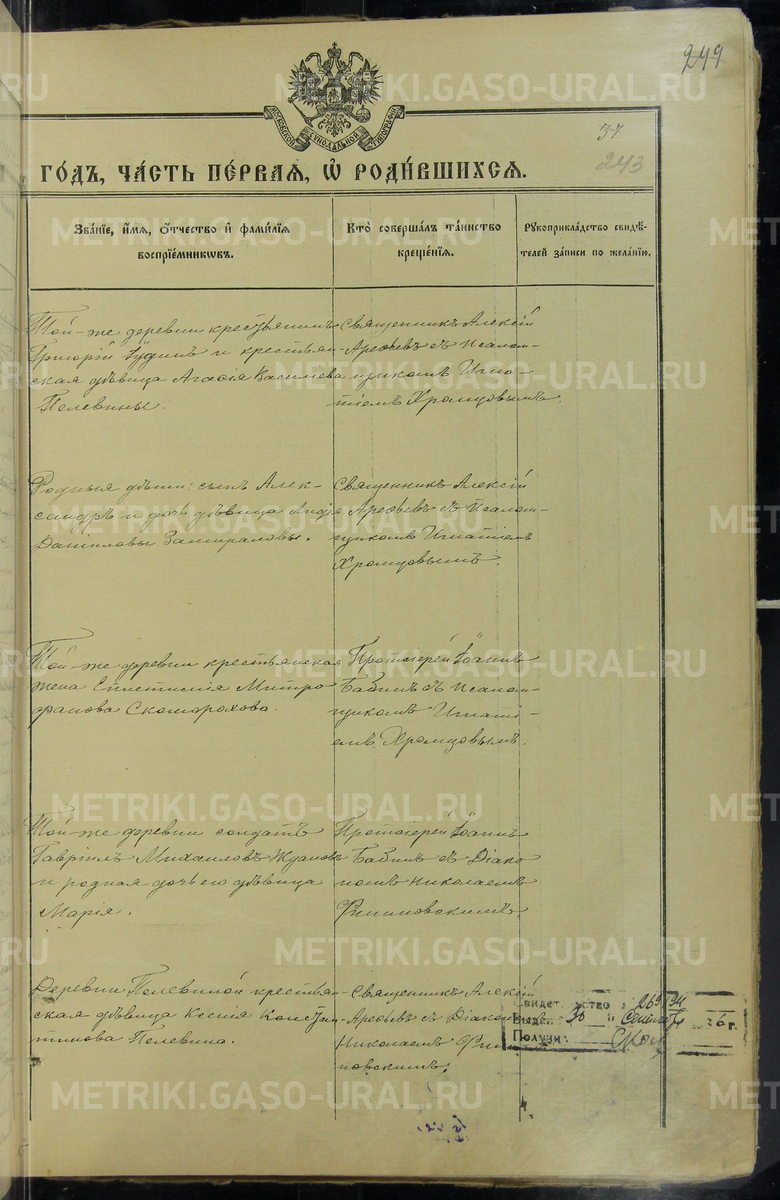 249
МОСКОВСКОЙ СѴНОДАЛЬНОЙ ТИПОГРАФІИ
37
243
ГО́ДЪ, ЧА́СТЬ ПЕ́РВАѦ, Ѡ҆ РОДИ́ВШИХСѦ.
Зва́нїе, и҆́мѧ, ѻ҆́тчество и҆ фами́лїѧ
воспрїе́мникѡвъ.
Кто̀ соверша́лъ та́инство
креще́нїѧ.
Рꙋкоприкла́дство свидѣ́-
телей за́писи по жела́нїю.
Той-же деревни крестьянинъ
Григорій Іудинъ и крестьян-
ская дѣвица Агафія Василиева
Пелевины.
Священникъ Алексій
Арефьевъ съ Псалом-
щикомъ Игна-
тіемъ Хромцовымъ.
Родныя дѣти: сынъ Алек-
сандръ и дочь дѣвица Лидія
Даніиловы Замираловы.
Священникъ Алексій
Арефьевъ съ Псалом-
щикомъ Игнатіемъ
Хромцовымъ.
Той-же деревни крестьянская
жена Епистимія Митро
фанова Скоморохова.
Протоіерей Іоаннъ
Бабинъ съ Псалом-
щикомъ Игнаті-
емъ Хромцовымъ.
Той-же деревни солдатъ
Гавріилъ Михаиловъ Ждановъ
и родная дочь его дѣвица
Марія.
Протоіерей Іоаннъ
Бабинъ съ Діако
номъ Николаемъ
Деревни Пелевиной крестьян-
ская дѣвица Ксенія Констан
тинова Пелевина.
Священникъ Алексій
Арефьевъ съ Діакономъ
Николаемъ
Свидетельство 265194
Выдан 30 сентября 36 г.
Получи
METRIKI.GASO-URAL.RU